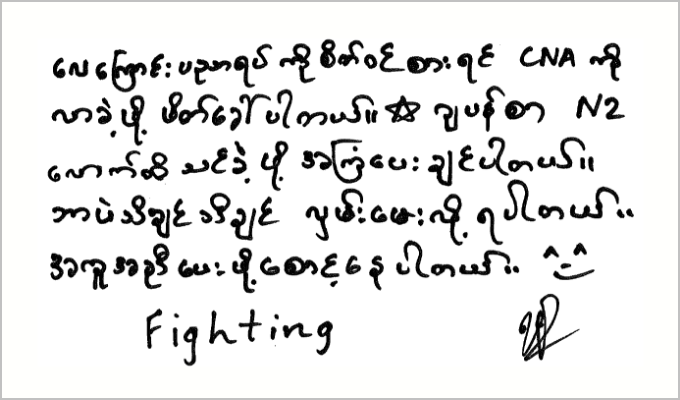 လေကြောင်းပညာရပ် ကို စိတ်ဝင်စားရင် CNA ကို
လာခဲ့ဖို့ ဖိတ်ခေါ်ပါတယ်။ ☆ ဂျပန်စာ N2
လောက်ထိ သင်ခဲ့ဖို့ အကြံပေးချင်ပါတယ်။
ဘာပဲသိချင်သိချင် လှမ်းမေးလို့ရပါတယ်။
အကူအညီပေးဖို့စောင့်နေပါတယ်။ ^-^
Fighting